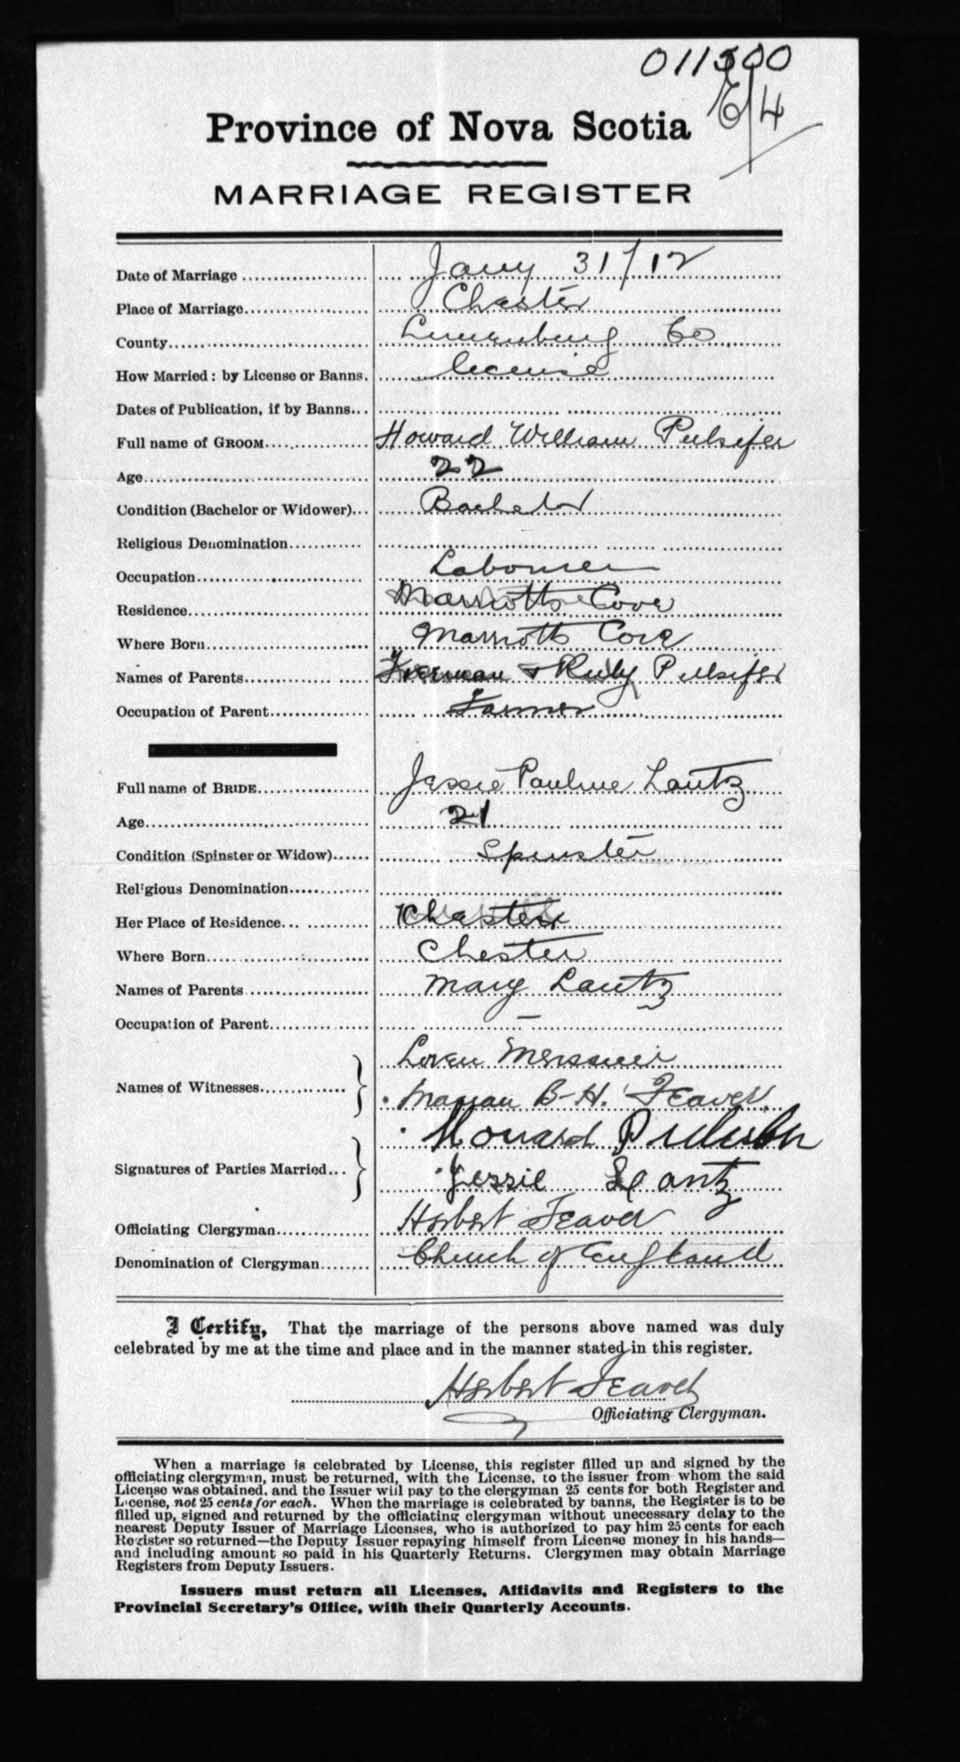 011500
E/4
Province of Nova Scotia
MARRIAGE REGISTER
Date of Marriage Jany 31/12
Place of Marriage Chester
County Lunenburg Co
How Married: by License or Banns. license
Dates of Publication, if by Banns
Full name of GROOM Howard William Pulsifer
Age 22
Condition (Bachelor or Widower) Bachelor
Religious Denomination
Occupation Labourer
Residence Marriotts Cove
Where Born Marriotts Cove
Names of Parents Freeman & Ruby Pulsifer
Occupation of Parent Farmer
Full name of BRIDE Jessie Pauline Lantz
Age 21
Condition (Spinster or Widow) Spinster
Religious Denomination
Her Place of Residence Chester
Where Born Chester
Names of Parents Mary Lantz
Occupation of Parent —
Names of Witnesses Loren
Marian B-H. Feaver
Signatures of Parties Married Howard
Jessie Lantz
Officiating Clergyman Herbert Feaver
Denomination of Clergyman Church of England
I Certify, That the marriage of the persons above named was duly
celebrated by me at the time and place and in the manner stated in this register.
Herbert Feaver
Officiating Clergyman.
When a marriage is celebrated by License, this register filled up and signed by the
officiating clergyman, must be returned, with the License, to the issuer from whom the said
License was obtained, and the Issuer will pay to the clergyman 25 cents for both Register and
License, not 25 cents for each. When the marriage is celebrated by banns, the Register is to be
filled up, signed and returned by the officiating clergyman without unnecessary delay to the
nearest Deputy Issuer of Marriage Licenses, who is authorized to pay him 25 cents for each
Register so returned—the Deputy Issuer repaying himself from License money in his hands—
and including amount so paid in his Quarterly Returns. Clergymen may obtain Marriage
Registers from Deputy Issuers.
Issuers must return all Licenses, Affidavits and Registers to the
Provincial Secretary's Office, with their Quarterly Accounts.